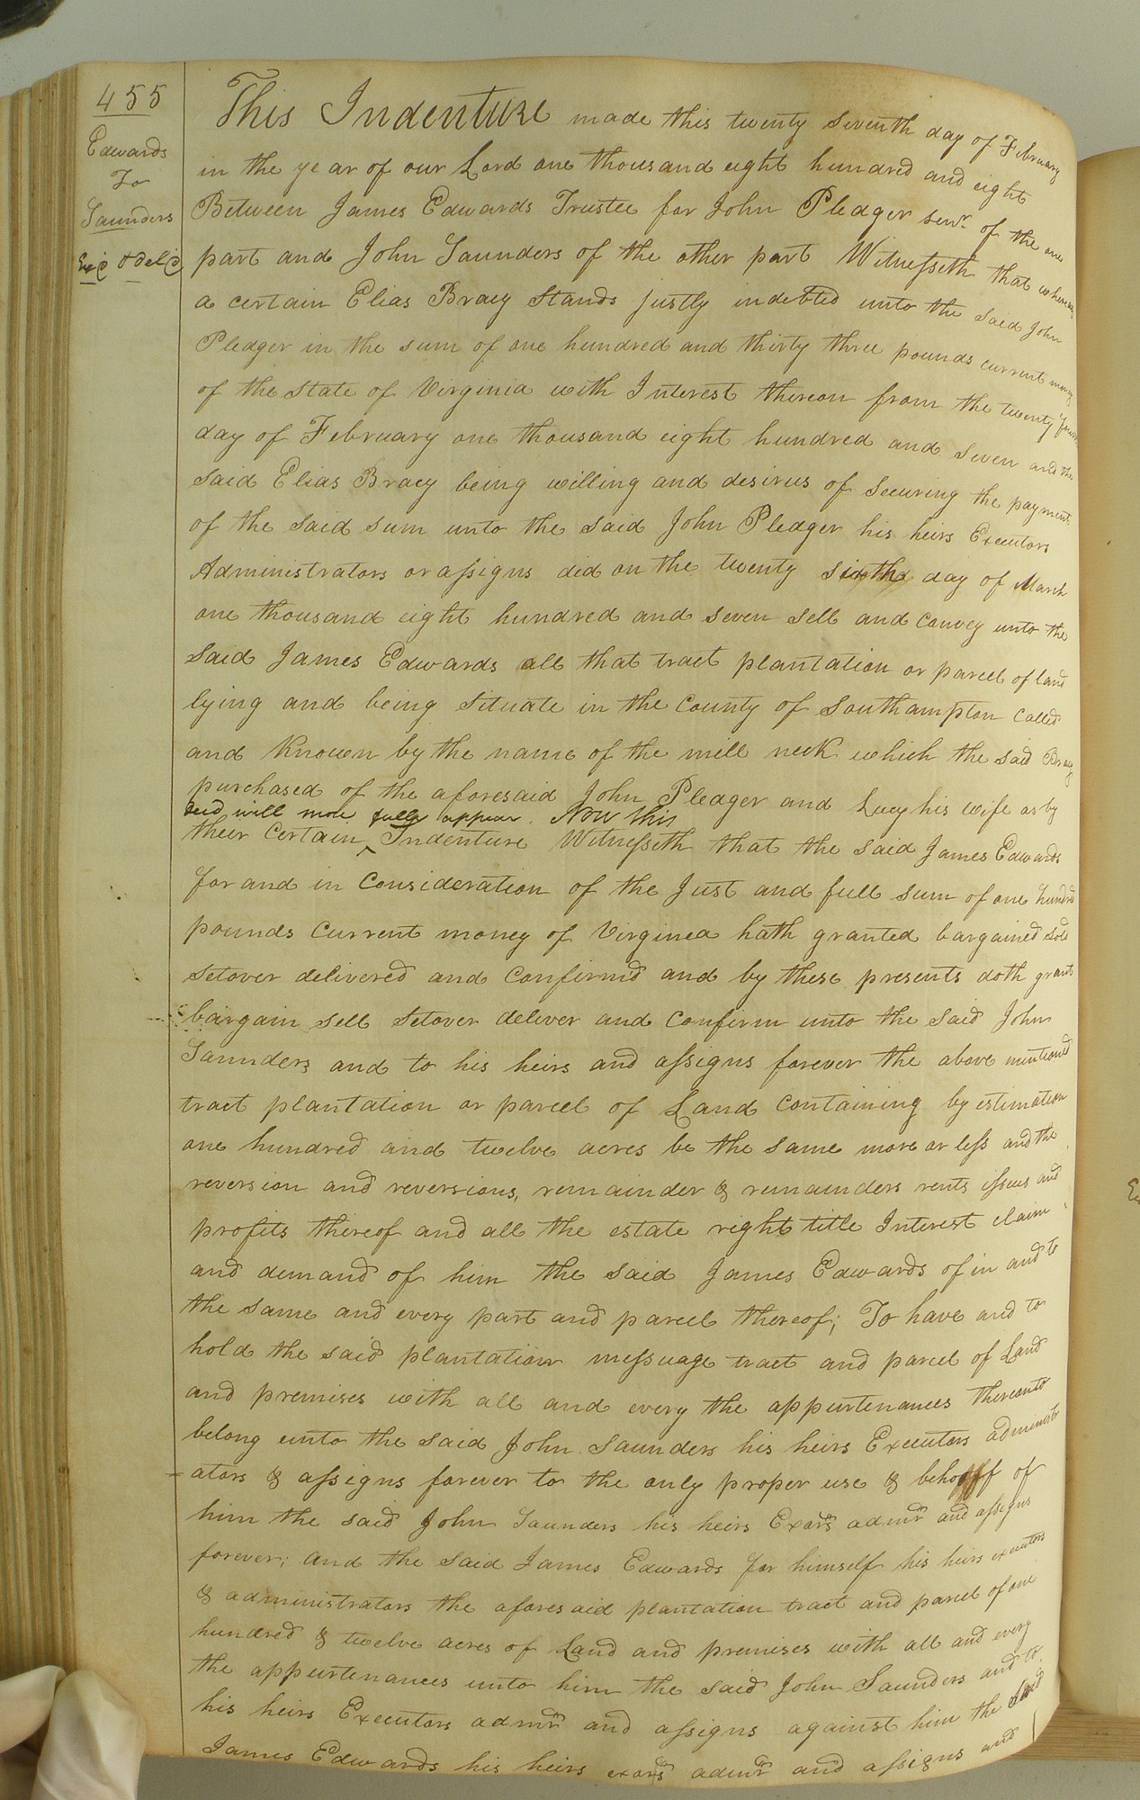 455
Edwards
To
Saunders
Exd & deld
This Indenture made this twenty seventh day of February
in the year of our Lord one thousand eight hundred and eight
Between James Edwards Trustee for John Pledger senr. of the one
part and John Saunders of the other part Witnesseth that whereas
a certain Elias Bracy Stands justly indebted unto the said John
Pledger in the sum of one hundred and thirty three pounds current money
of the State of Virginia with Interest thereon from the twenty
day of February one thousand eight hundred and seven and the
said Elias Bracy being willing and desirus of securing the payment
of the said sum unto the said John Pledger his heirs Executors
Administrators or assigns did on the twenty sixth day of March
one thousand eight hundred and seven sell and convey unto the
said James Edwards all that tract plantation or parcel of land
lying and being situate in the County of Southampton called
and known by the name of the mill neck which the said Bracy
purchased of the aforesaid John Pledger and Lucy his wife as by
deed will more fully appear. Now this
their certain ^ Indenture Witnesseth that the said James Edwards
for and in consideration of the Just and full sum of one hundred
pounds Current money of Virginia hath granted bargained sold
setover delivered and confirmd and by these presents doth grant
bargain sell setover deliver and confirm unto the said John
Saunders and to his heirs and assigns forever the above mentioned
tract plantation or parcel of Land containing by estimation
one hundred and twelve acres be the same more or less and the
reversion and reversions, remainder & remainders rents issues and
profits thereof and all the estate right title Interest claim
and demand of him the said James Edwards of in and to
the same and every part and parcel thereof; To have and to
hold the said plantation messuage tract and parcel of Land
and premises with all and every the appurtenances thereunto
belong unto the said John Saunders his heirs Executors administr
ators & assigns forever to the only proper use & behoof of
him the said John Saunders his heirs Exors admrs and assigns
forever; and the said James Edwards for himself his heirs executors
& administrators the aforesaid plantation tract and parcel of one
hundred & twelve acres of Land and premises with all and every
the appurtenances unto him the said John Saunders and to
his heirs Executors admrs and assigns against him the said
James Edwards his heirs exors admrs and assigns and